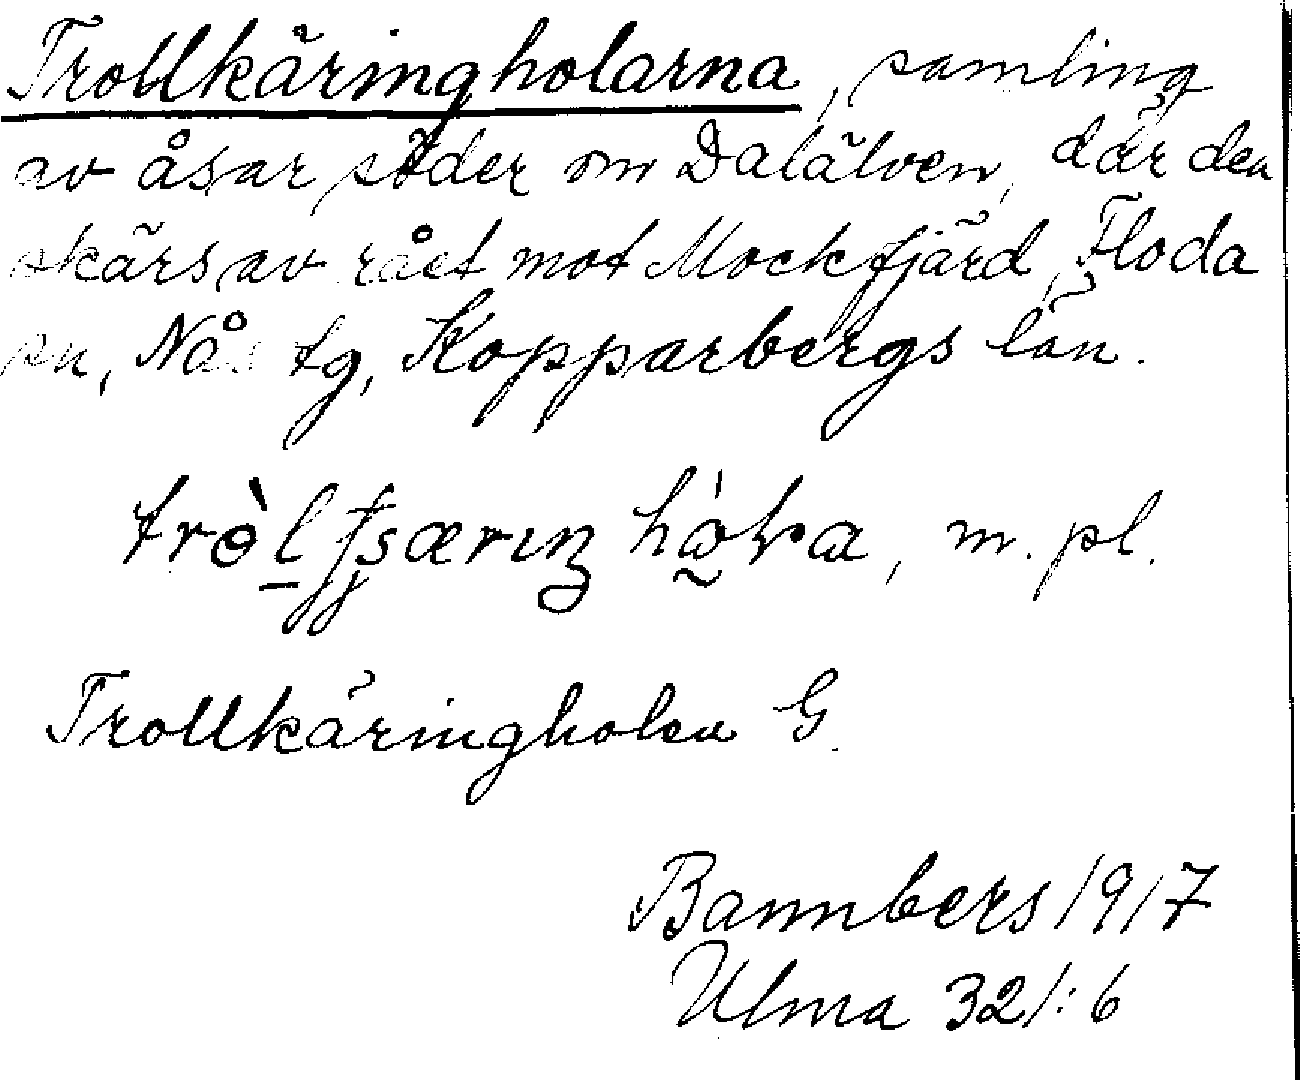 Trollkäringholarna, samling
av åsar söder om Dalälven, där den
skärs av rået mot Mockfjärd, Floda
sn, Nås tg, Kopparbergs län.
m. pl.
Trollkäringholen G.
Bannbers 1917
Ulma 321:6